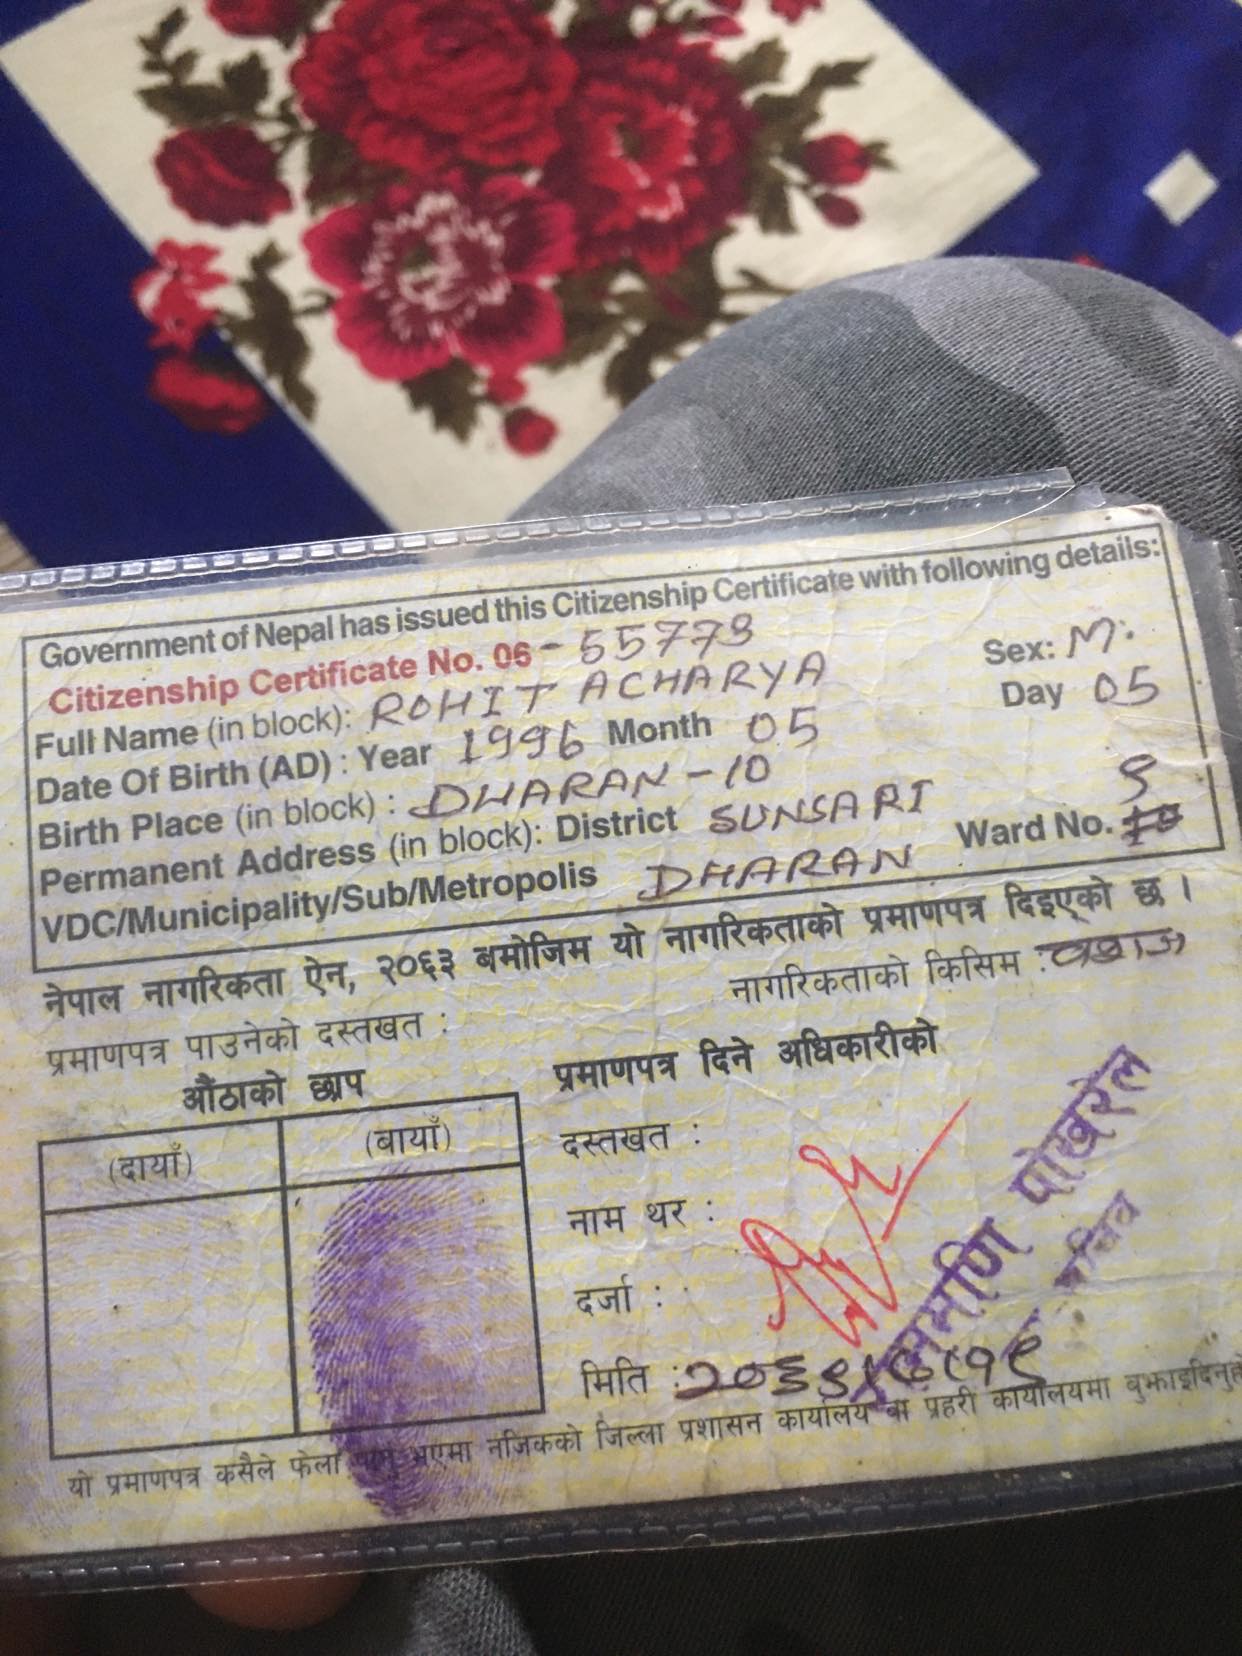 Government of Nepal has issued this Citizenship Certificate with following details:
Citizenship Certificate No. 06-55773 Sex: M.
Full Name (in block): ROHIT ACHARYA
Date Of Birth (AD) : Year 1996 Month 05 Day 05
Birth Place (in block) : DHARAN-10
Permanent Address (in block): District SUNSARI
VDC/Municipality/Sub/Metropolis DHARAN Ward No.
नेपाल नागरिकता ऐन, २०६३ बमोजिम यो नागरिकताको प्रमाणपत्र दिइएको छ ।
नागरिकताको किसिम : वंशज
प्रमाणपत्र पाउनेको दस्तखत :
औंठाको छाप
प्रमाणपत्र दिने अधिकारीको
(दायाँ) (बायाँ)
दस्तखत :
नाम थर :
दर्जा :
मिति :
पोखरेल
यो प्रमाणपत्र कसैले फेला भएमा नजिकको जिल्ला प्रशासन कार्यालय वा प्रहरी कार्यालयमा